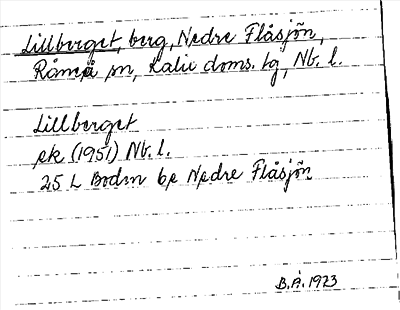 Lillberget, berg, Nedre Flåsjön,
Råneå sn, Kalix doms. tg, Nb. l.
Lillberget
ek (1951) Nb. l.
25 L Boden be Nedre Flåsjön
B.Å. 1973